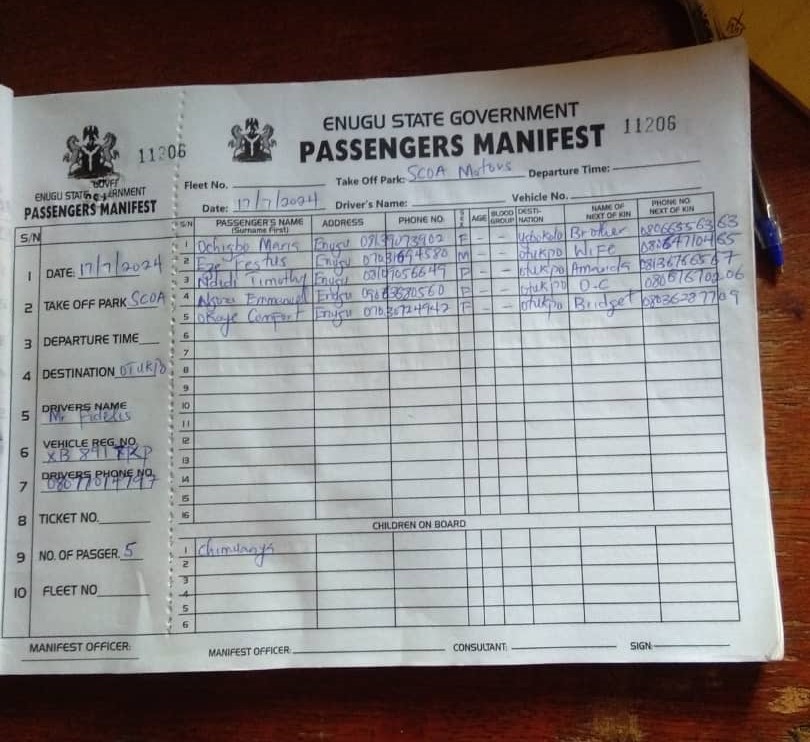 11206
ENUGU STATE GOVERNMENT
PASSENGERS MANIFEST
S/N
1 DATE: 17/7/2024
2 TAKE OFF PARK SCOA
3 DEPARTURE TIME
4 DESTINATION OTUKPO
5 DRIVERS NAME
Mr Fidelis
6 VEHICLE REG. NO.
XB
7 DRIVERS PHONE NO.
8 TICKET NO.
9 NO. OF PASGER. 5
10 FLEET NO
MANIFEST OFFICER:
ENUGU STATE GOVERNMENT
PASSENGERS MANIFEST
11206
Fleet No. Take Off Park: SCOA Motors Departure Time:
Date: 17/7/2024 Driver's Name: Vehicle No.
S/N PASSENGER'S NAME (Surname First) ADDRESS PHONE NO. SEX AGE BLOOD GROUP DESTI-NATION NAME OF NEXT OF KIN PHONE NO. NEXT OF KIN
1 Ochigbo Maria Enugu F - - Brother
2 Eze Festus Enugu M - - otukpo Wife
3 Timothy Enugu - - otukpo Amanda
4 Emmanuel Enugu - - otukpo O.C
5 Okoye Comfort Enugu F - - otukpo Bridget
6
7
8
9
10
11
12
13
14
15
16
CHILDREN ON BOARD
1
2
3
4
5
6
MANIFEST OFFICER: CONSULTANT: SIGN: